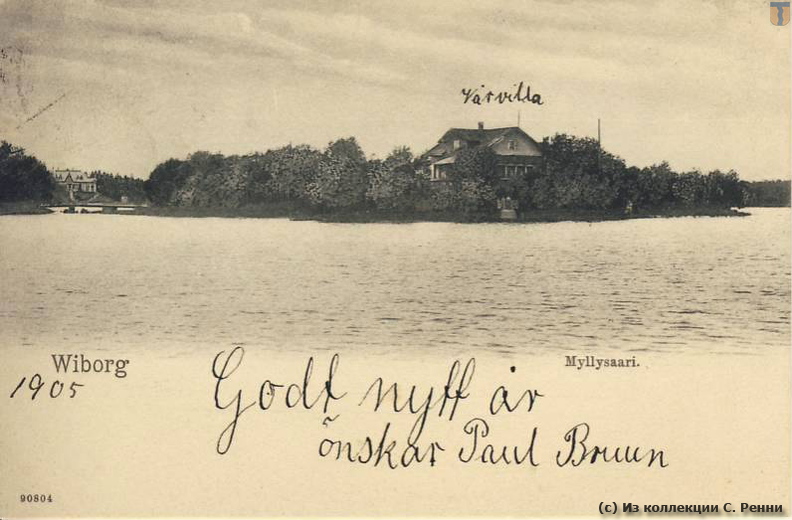 Vår villa
Wiborg
Myllysaari.
1905
Godt nytt år
önskar Paul Bruun
90804
(c) Из коллекции С. Ренни